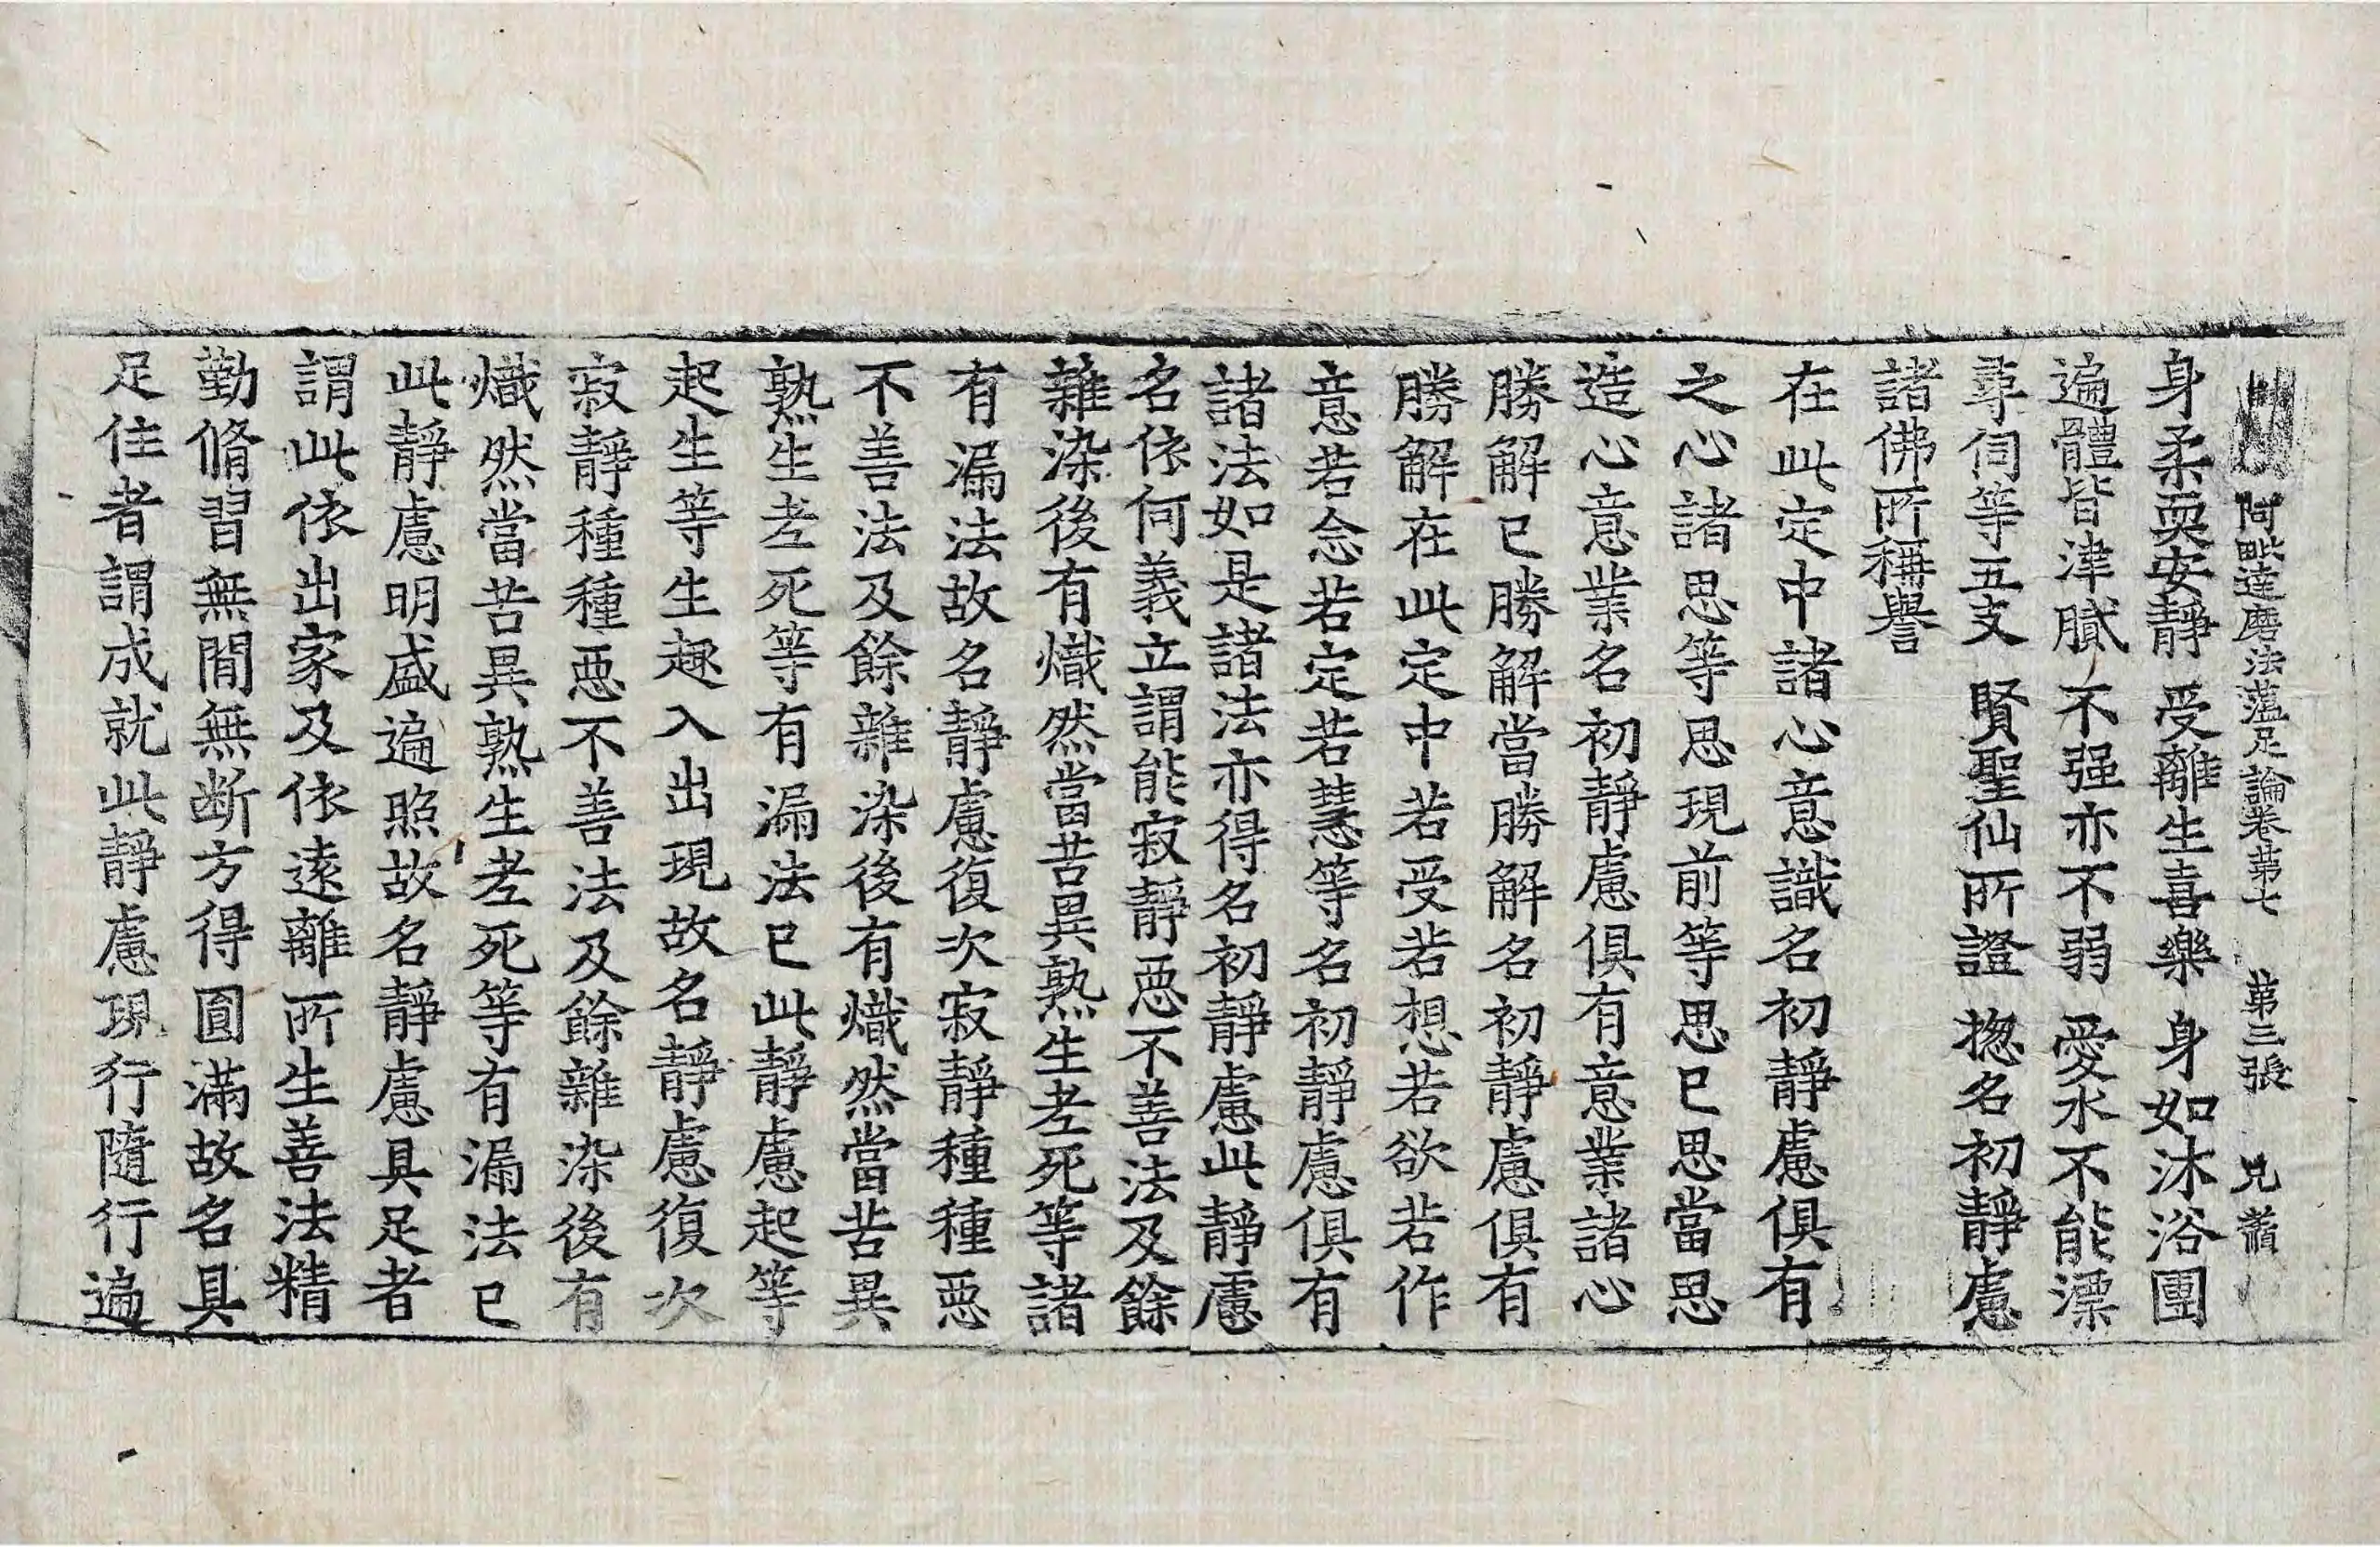 阿毗達磨法蘊足論卷第七　第三張　兄
身柔耎安靜　受離生喜樂　身如沐浴團
遍體皆津膩　不强亦不弱　愛水不能漂
尋伺等五支　賢聖仙所證　揔名初靜慮
諸佛所稱譽
在此定中諸心意識名初靜慮俱有
之心諸思等思現前等思思已思當思
造心意業名初靜慮俱有意業諸心
勝解已勝解當勝解名初靜慮俱有
勝解在此定中若受若想若欲若作
意若念若定若慧等名初靜慮俱有
諸法如是諸法亦得名初靜慮此靜慮
名依何義立謂能寂靜惡不善法及餘
雜染後有熾然當苦異熟生老死等諸
有漏法故名靜慮復次寂靜種種惡
不善法及餘雜染後有熾然當苦異
熟生老死等有漏法已此靜慮起等
起生等生趣入出現故名靜慮復次
寂靜種種惡不善法及餘雜染後有
熾然當苦異熟生老死等有漏法已
此靜慮明盛遍照故名靜慮具足者
謂此依出家及依遠離所生善法精
勤脩習無間無斷方得圓滿故名具
足住者謂成就此靜慮現行隨行遍